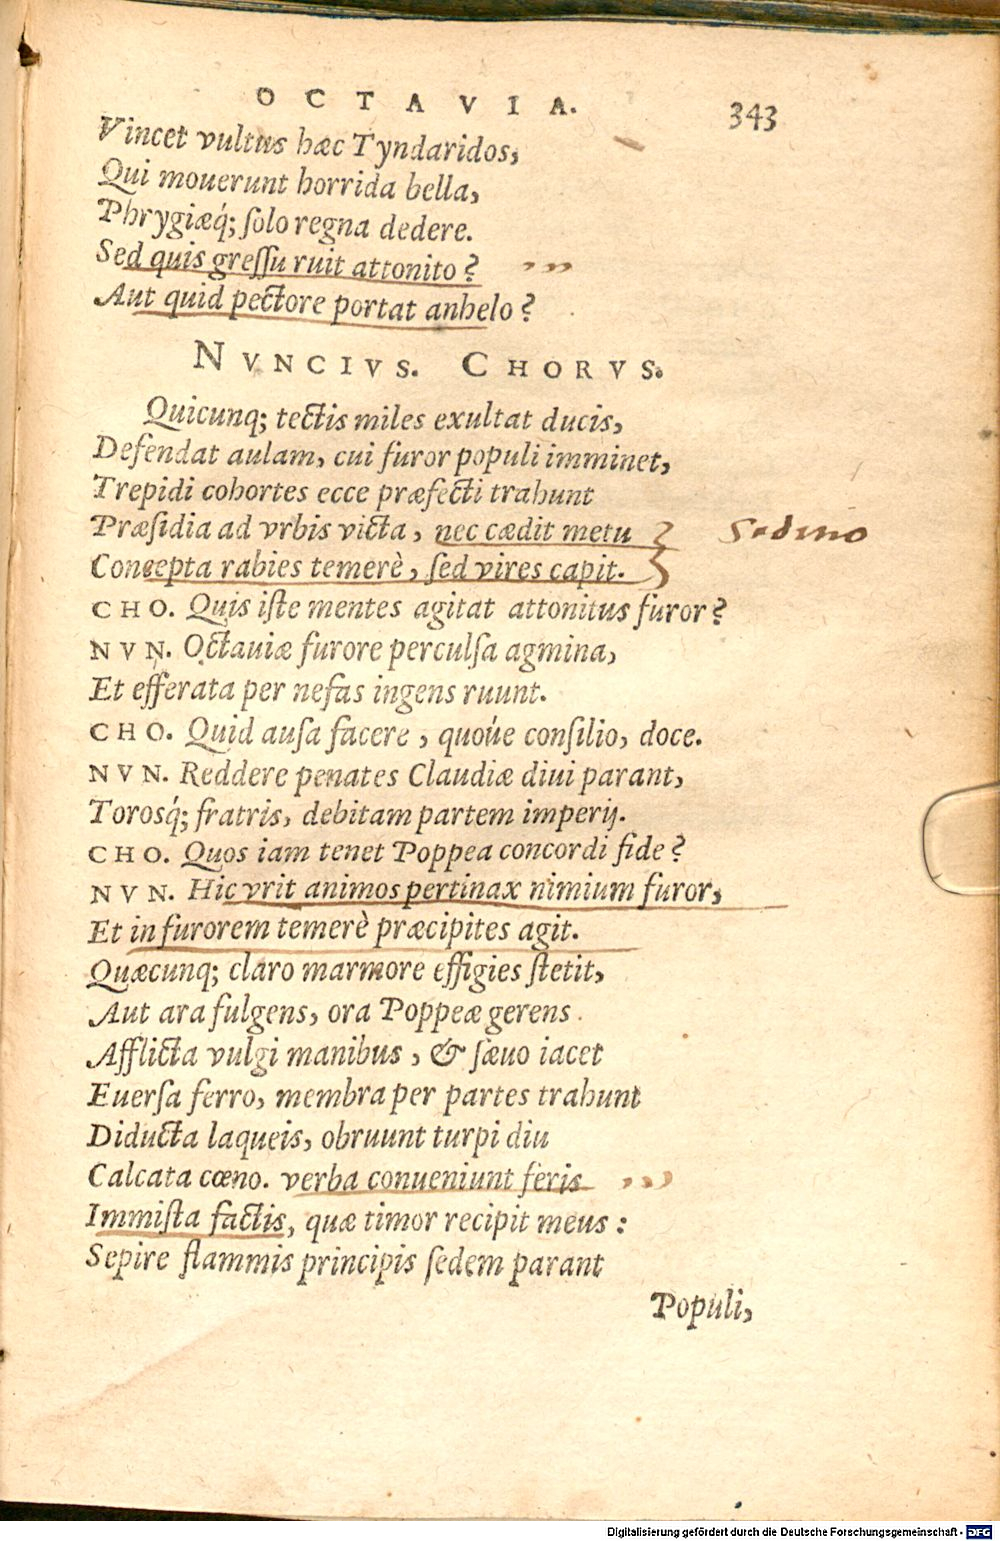 OCTAVIA. 343
Vincet vultus hæc Tyndaridos,
Qui mouerunt horrida bella,
Phrygiæq́; ſolo regna dedere.
Sed quis greſſu ruit attonito?
Aut quid pectore portat anhelo?
NVNCIVS. CHORVS.
Quicunq; tectis miles exultat ducis,
Defendat aulam, cui furor populi imminet,
Trepidi cohortes ecce præfecti trahunt
Præſidia ad vrbis victa, nec cædit metu
Concepta rabies temerè, ſed vires capit.
CHO. Quis iſte mentes agitat attonitus furor?
NVN. Octauiæ furore perculſa agmina,
Et efferata per nefas ingens ruunt.
CHO. Quid auſa facere, quoúe conſilio, doce.
NVN. Reddere penates Claudiæ diui parant,
Torosq́; fratris, debitam partem imperij.
CHO. Quos iam tenet Poppea concordi fide?
NVN. Hic vrit animos pertinax nimium furor,
Et in furorem temerè præcipites agit.
Quæcunq; claro marmore effigies ſtetit,
Aut ara fulgens, ora Poppeæ gerens.
Afflicta vulgi manibus, & ſæuo iacet
Euerſa ferro, membra per partes trahunt
Diducta laqueis, obruunt turpi diu
Calcata cœno. verba conueniunt feris
Immiſta factis, quæ timor recipit meus:
Sepire flammis principis ſedem parant
Populi,
Digitalisierung gefördert durch die Deutsche Forschungsgemeinschaft - DFG